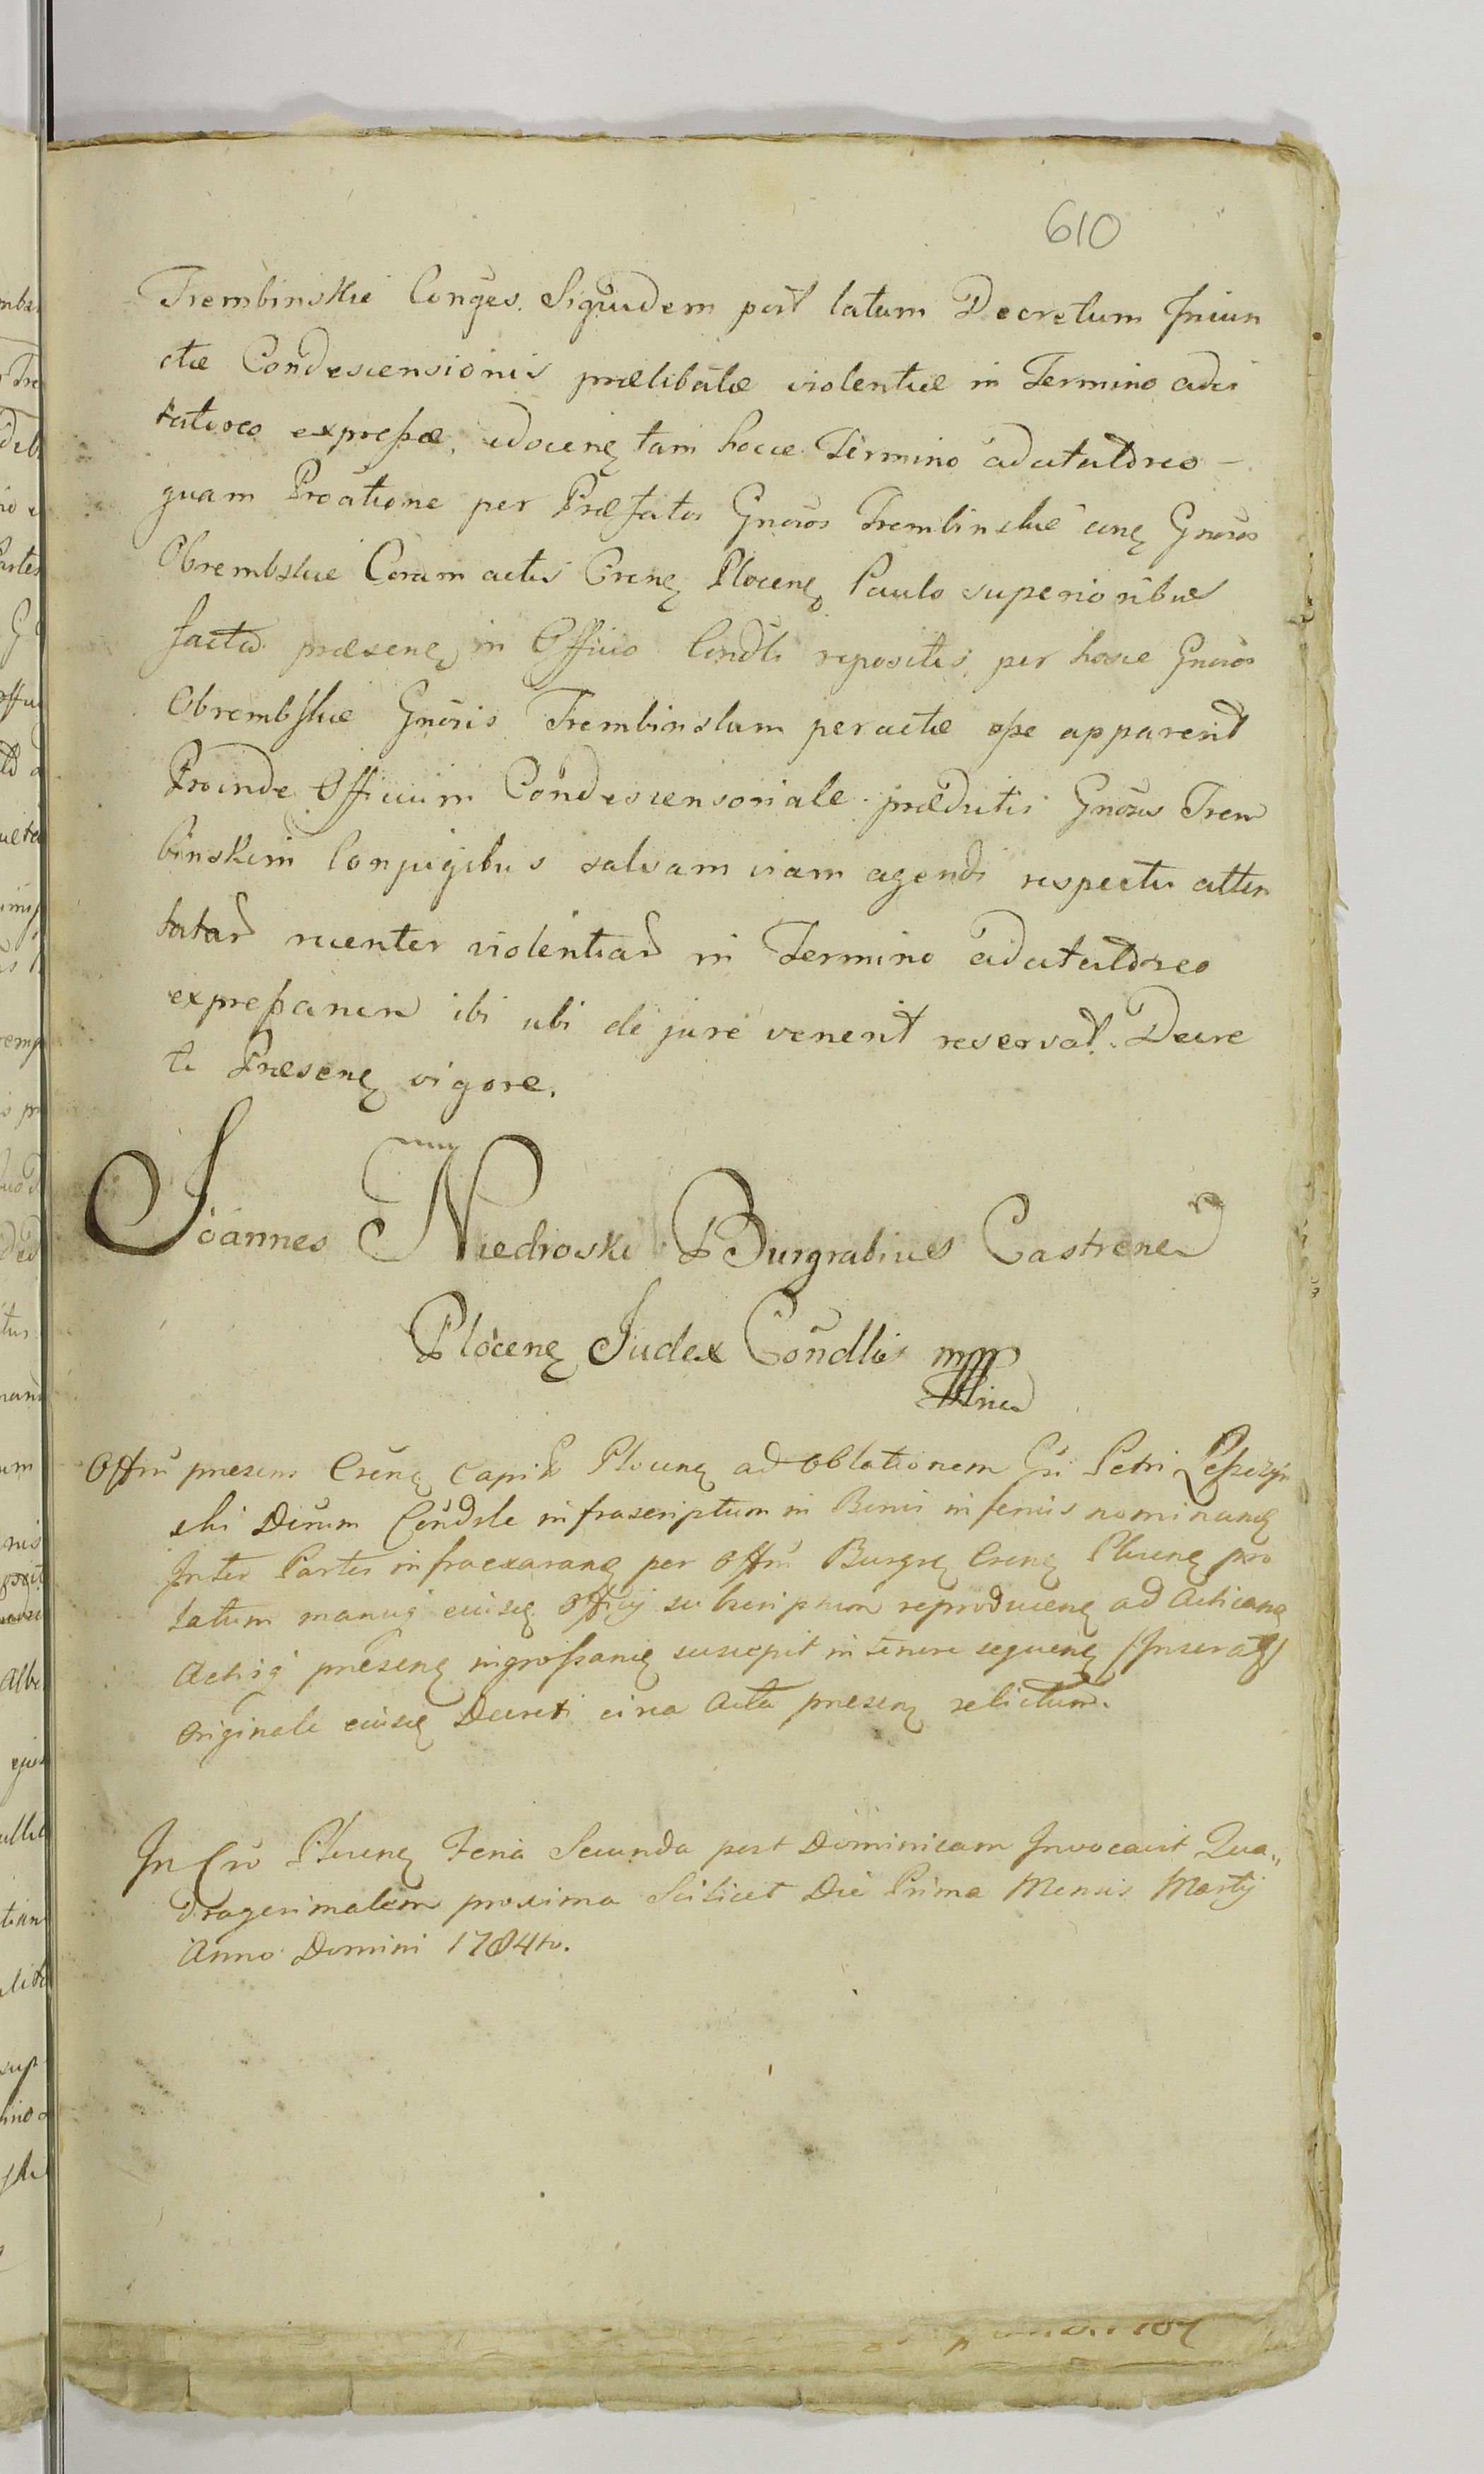 610
Trembinskie Conges. Siquidem post latum Decretum Iniun
ctæ Condescensionis prælibatæ violentiæ in Termino adci
tatoreo expressæ, edocen tam hocce Termino adcitatoreo –
quam Proatione per Præfatos Gnosos Trembinskie Gnosos
Obrembskie Coram actis Cren Plocen Paulo superioribus
facta præsen in Officio Condli repositis, per hosce Gnosos
Obrembskie Gnosis Trembinskim peractæ esse apparent
Proinde Officium Condescensoriale prædictis Gnosis Trem
binskim Conjugibus salvam viam agendi respectu atten
tatar violentiar in Termino adcitatoreo
expressanem ibi ubi de jure venerit reservat. Decre
ti Præsen vigore.
Joannes Niedroski Burgrabius Castrenc
Plocen Judex Condlis mpp
Offm præsens Cren Capit Plocen ad oblationem Gsi Petri Leszczyn
ski Dcrum Condsle infrascriptum in Binis inferius nominan
Inter Partes infraexaran per offm Burgr Cren Plocen pro
latum manuq eiusq Officij subscriptum reproducen ad Actican
Actisq præsen ingrossan suscepit in tenore sequen (Inseratg)
Originale eiusq Decreti circa Acta præsen relictum.
In Cro Plocen Feria Secunda post Dominicam Invocavit Qua„
dragesimalem proxima Scilicet Die Prima Mensis Martij
Anno Domini 1784to.